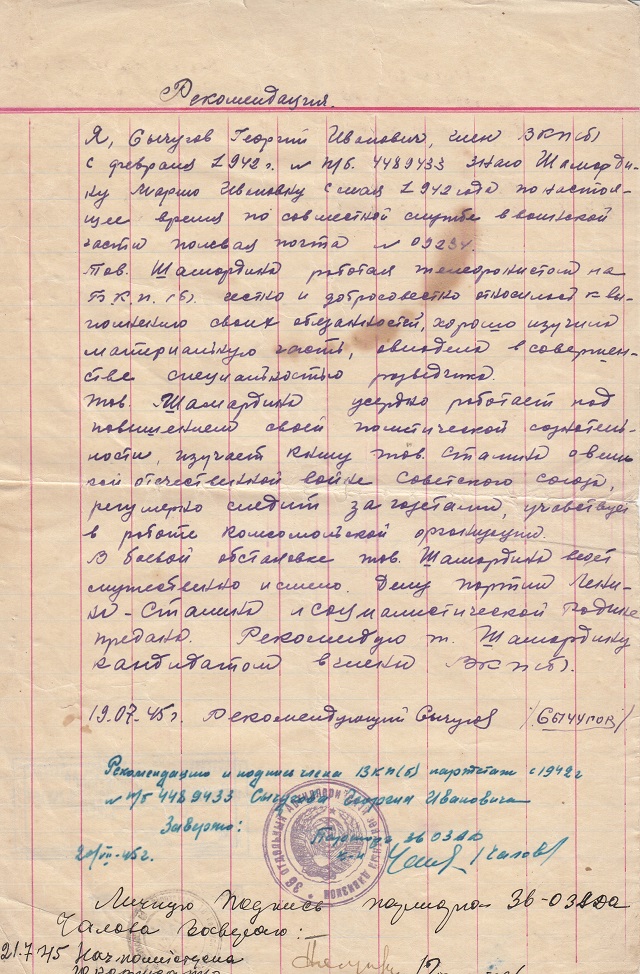 Рекомендация.
Я, Сычугов Георгий Иванович, член ВКП(б)
с февраля 1942 г. N п/б. 4489433 знаю Шамарди-
ну Марию Ивановну с мая 1942 года по настоя-
щее время по совместной службе в воинской
части полевая почта N 09234.
Тов. Шамардина работая телефонистом на
БКП. (б). честно и добросовестно относилась к вы-
полнению своих обязанностей, хорошо изучила
материальную часть, овладела в совершен-
стве специальностью разведчика.
Тов. Шамардина усердно работает над
повышением своей политической сознатель-
ности, изучает книгу тов. Сталина о вели-
кой отечественной войне Советского Союза,
регулярно следит за газетами, участвует
в работе комсомольской организации.
В боевой обстановке тов. Шамардина ведет
мужественно и смело. Делу партии Лени-
на-Сталина и социалистической Родине
предана. Рекомендую т. Шамардину
кандидатом в члены ВКП(б).
19.07.45г. Рекомендующий Сычугов /Сычугов/
Рекомендацию и подпись члена ВКП(б) партстаж с 1942г
N п/б 4489433 Сычугова Георгия Ивановича
Заверяю: Парторг 36 ОЗАД
20/VII-45г. к-н Чалов
36 ОТДЕЛЬНЫЙ
Личную подпись парторга 36-ОЗАДа
Чалова заверяю:
21.7.45 Нач политотдела